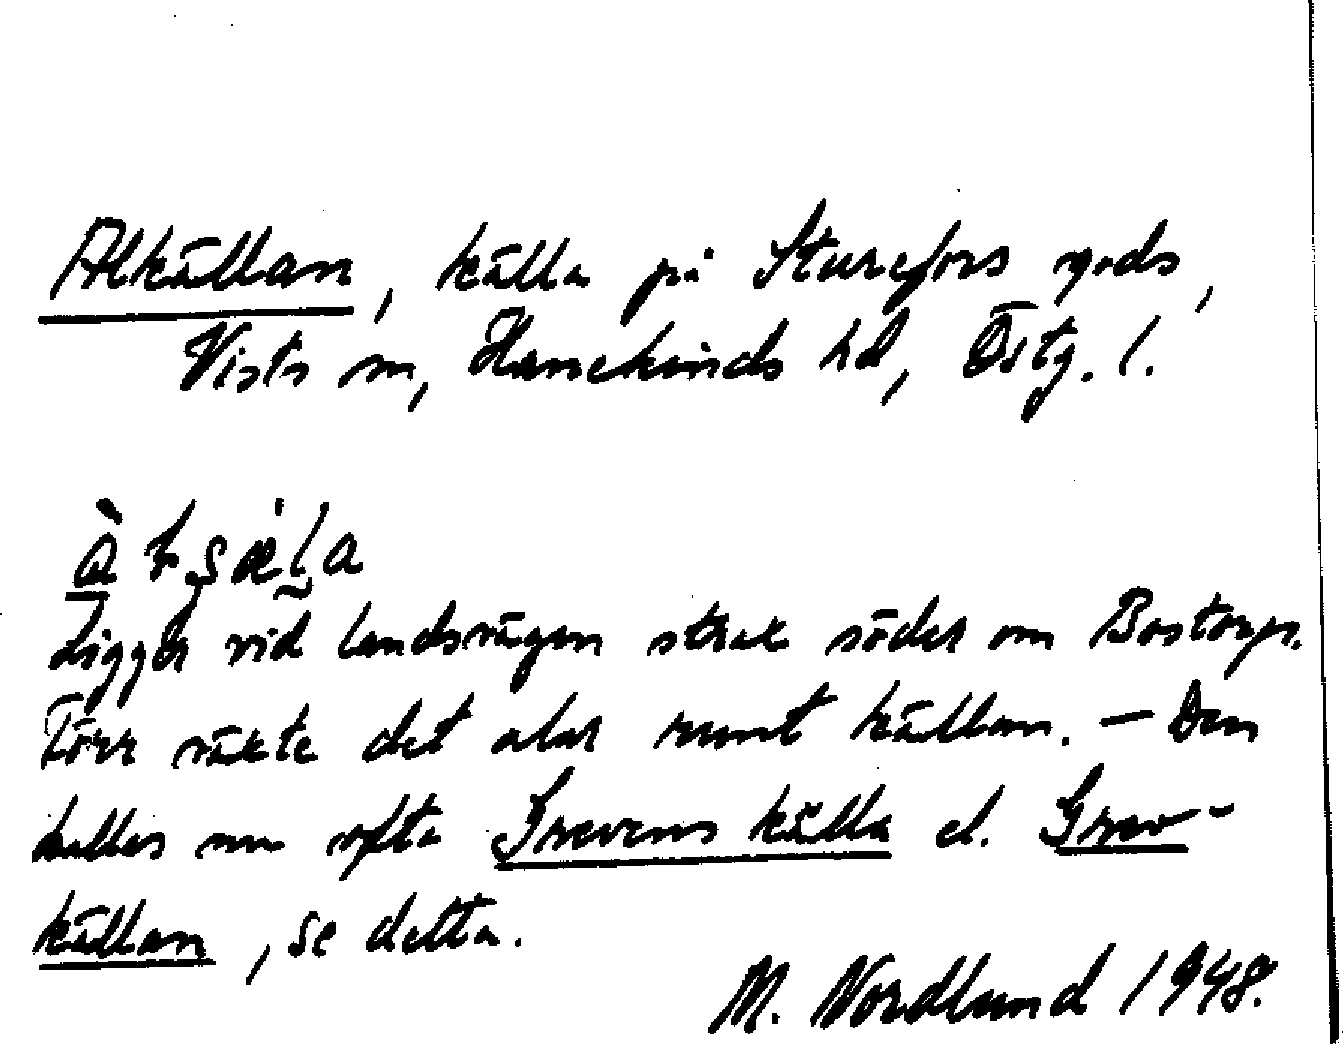 Alkällan, källa på Sturefors gods,
Vists sn, Hanekinds hd, Östg. l.
Ligger vid landsvägen strax söder om Bostorp.
Förr växte det alar runt källan. — Den
kallas nu ofta Grevens källa el. Grev-
källan, se detta.
M. Nordlund 1948.